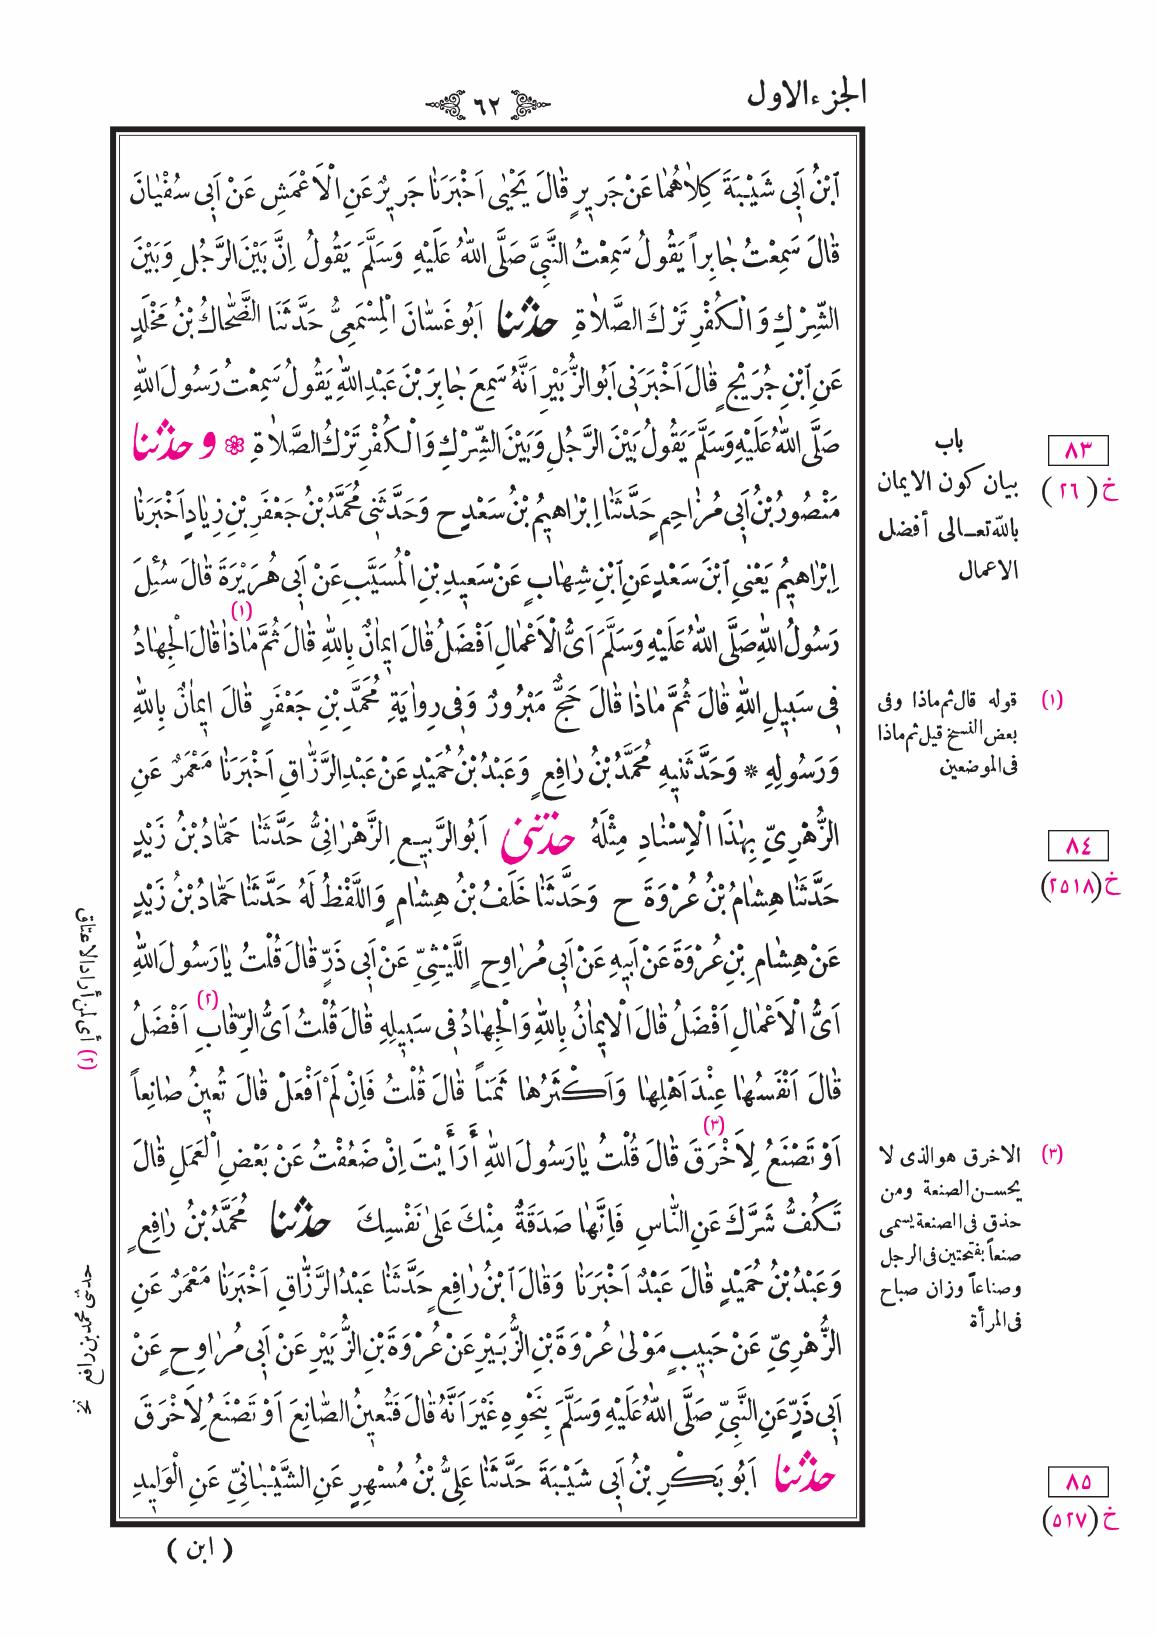 الجزء الاول
٦٢
ٱبْنُ اَبِى شَيْبَةَ كِلاٰهُمٰا عَنْ جَرِيرٍ قٰالَ يَحْيٰى اَخْبَرَنٰا جَرِيرٌ عَنِ الْاَعْمَشِ عَنْ اَبِى سُفْيٰانَ
قٰالَ سَمِعْتُ جٰابِراً يَقُولُ سَمِعْتُ النَّبِىَّ صَلَّى اللّٰهُ عَلَيْهِ وَسَلَّمَ يَقُولُ اِنَّ بَيْنَ الرَّجُلِ وَبَيْنَ
الشِّرْكِ وَالْكُفْرِ تَرْكَ الصَّلاٰةِ حدثنا اَبُو غَسّٰانَ الْمِسْمَعِىُّ حَدَّثَنَا الضَّحّٰاكُ بْنُ مَخْلَدٍ
عَنِ ٱبْنِ جُرَيْجٍ قٰالَ اَخْبَرَنِى اَبُو الزُّبَيْرِ اَنَّهُ سَمِعَ جٰابِرَ بْنَ عَبْدِ اللّٰهِ يَقُولُ سَمِعْتُ رَسُولَ اللّٰهِ
صَلَّى اللّٰهُ عَلَيْهِ وَسَلَّمَ يَقُولُ بَيْنَ الرَّجُلِ وَبَيْنَ الشِّرْكِ وَالْكُفْرِ تَرْكُ الصَّلاٰةِ ❁ و حدثنا
مَنْصُورُ بْنُ اَبِى مُزٰاحِمٍ حَدَّثَنٰا اِبْرٰاهِيمُ بْنُ سَعْدٍ ح وَحَدَّثَنِى مُحَمَّدُ بْنُ جَعْفَرِ بْنِ زِيٰادٍ اَخْبَرَنٰا
اِبْرٰاهِيمُ يَعْنِى ٱبْنَ سَعْدٍ عَنِ ٱبْنِ شِهٰابٍ عَنْ سَعِيدِ بْنِ الْمُسَيَّبِ عَنْ اَبِى هُرَيْرَةَ قٰالَ سُئِلَ
رَسُولُ اللّٰهِ صَلَّى اللّٰهُ عَلَيْهِ وَسَلَّمَ اَىُّ الْاَعْمٰالِ اَفْضَلُ قٰالَ ايمٰانٌ بِاللّٰهِ قٰالَ ثُمَّ مٰاذٰا (١) قٰالَ الْجِهٰادُ
فِى سَبِيلِ اللّٰهِ قٰالَ ثُمَّ مٰاذٰا قٰالَ حَجٌّ مَبْرُورٌ وَفِى رِوٰايَةِ مُحَمَّدِ بْنِ جَعْفَرٍ قٰالَ ايمٰانٌ بِاللّٰهِ
وَرَسُولِهِ * وَحَدَّثَنِيهِ مُحَمَّدُ بْنُ رٰافِعٍ وَعَبْدُ بْنُ حُمَيْدٍ عَنْ عَبْدِ الرَّزّٰاقِ اَخْبَرَنٰا مَعْمَرٌ عَنِ
الزُّهْرِىِّ بِهٰذَا الْاِسْنٰادِ مِثْلَهُ حدثنى اَبُو الرَّبِيعِ الزَّهْرٰانِىُّ حَدَّثَنٰا حَمّٰادُ بْنُ زَيْدٍ
حَدَّثَنٰا هِشٰامُ بْنُ عُرْوَةَ ح وَحَدَّثَنٰا خَلَفُ بْنُ هِشٰامٍ وَاللَّفْظُ لَهُ حَدَّثَنٰا حَمّٰادُ بْنُ زَيْدٍ
عَنْ هِشٰامِ بْنِ عُرْوَةَ عَنْ اَبِيهِ عَنْ اَبِى مُرٰاوِحٍ اللَّيْثِىِّ عَنْ اَبِى ذَرٍّ قٰالَ قُلْتُ يٰا رَسُولَ اللّٰهِ
اَىُّ الْاَعْمٰالِ اَفْضَلُ قٰالَ الْايمٰانُ بِاللّٰهِ وَالْجِهٰادُ فِى سَبِيلِهِ قٰالَ قُلْتُ اَىُّ الرِّقٰابِ (٢) اَفْضَلُ
قٰالَ اَنْفَسُهٰا عِنْدَ اَهْلِهٰا وَاَكْثَرُهٰا ثَمَناً قٰالَ قُلْتُ فَاِنْ لَمْ اَفْعَلْ قٰالَ تُعِينُ صٰانِعاً
اَوْ تَصْنَعُ لِاَخْرَقَ (٣) قٰالَ قُلْتُ يٰا رَسُولَ اللّٰهِ أَرَأَيْتَ اِنْ ضَعُفْتُ عَنْ بَعْضِ الْعَمَلِ قٰالَ
تَكُفُّ شَرَّكَ عَنِ النّٰاسِ فَاِنَّهٰا صَدَقَةٌ مِنْكَ عَلىٰ نَفْسِكَ حدثنا مُحَمَّدُ بْنُ رٰافِعٍ
وَعَبْدُ بْنُ حُمَيْدٍ قٰالَ عَبْدٌ اَخْبَرَنٰا وَقٰالَ ٱبْنُ رٰافِعٍ حَدَّثَنٰا عَبْدُ الرَّزّٰاقِ اَخْبَرَنٰا مَعْمَرٌ عَنِ
الزُّهْرِىِّ عَنْ حَبِيبٍ مَوْلىٰ عُرْوَةَ بْنِ الزُّبَيْرِ عَنْ عُرْوَةَ بْنِ الزُّبَيْرِ عَنْ اَبِى مُرٰاوِحٍ عَنْ
اَبِى ذَرٍّ عَنِ النَّبِىِّ صَلَّى اللّٰهُ عَلَيْهِ وَسَلَّمَ بِنَحْوِهِ غَيْرَ اَنَّهُ قٰالَ فَتُعِينُ الصّٰانِعَ اَوْ تَصْنَعُ لِاَخْرَقَ
حدثنا اَبُو بَكْرِ بْنُ اَبِى شَيْبَةَ حَدَّثَنٰا عَلِىُّ بْنُ مُسْهِرٍ عَنِ الشَّيْبٰانِىِّ عَنِ الْوَلِيدِ
( ابن )
باب
بيان كون الايمان
بالله تعالى أفضل
الاعمال
٨٣
خ (٢٦)
(١) قوله قال ثم ماذا وفى
بعض النسخ قيل ثم ماذا
فى الموضعين
٨٤
خ (٢٥١٨)
(٣) الاخرق هو الذى لا
يحسن الصنعة ومن
حذق فى الصنعة يسمى
صنعاً بفتحتين فى الرجل
وصناعاً وزان صباح
فى المرأة
٨٥
خ (٥٢٧)
(٢) أى لمن أراد الاعتاق
حدثنى محمد بن رافع نخ